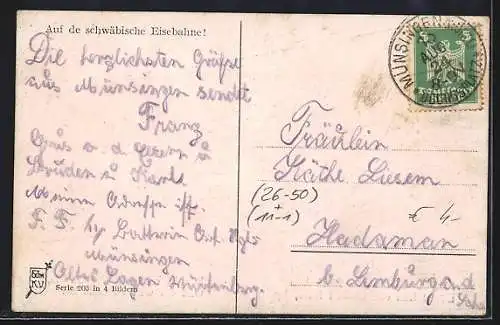 Auf de schwäbische Eisebahne!
Die herzlichsten Grüße
aus Münsingen sendet
Franz
Gruß a. d. Eltern u
Brüder u Karl.
Meine Adresse ist.
F. F. Batterie Art.
Münsingen
Altes Lager Württenberg.
Serie 203 in 4 Bildern
MÜNSINGEN
5
Fräulein
Käthe Liesem
(26-50)
+
(11-1)
€ 4-
Hadamar
b. Limburg a. d.
Lahn